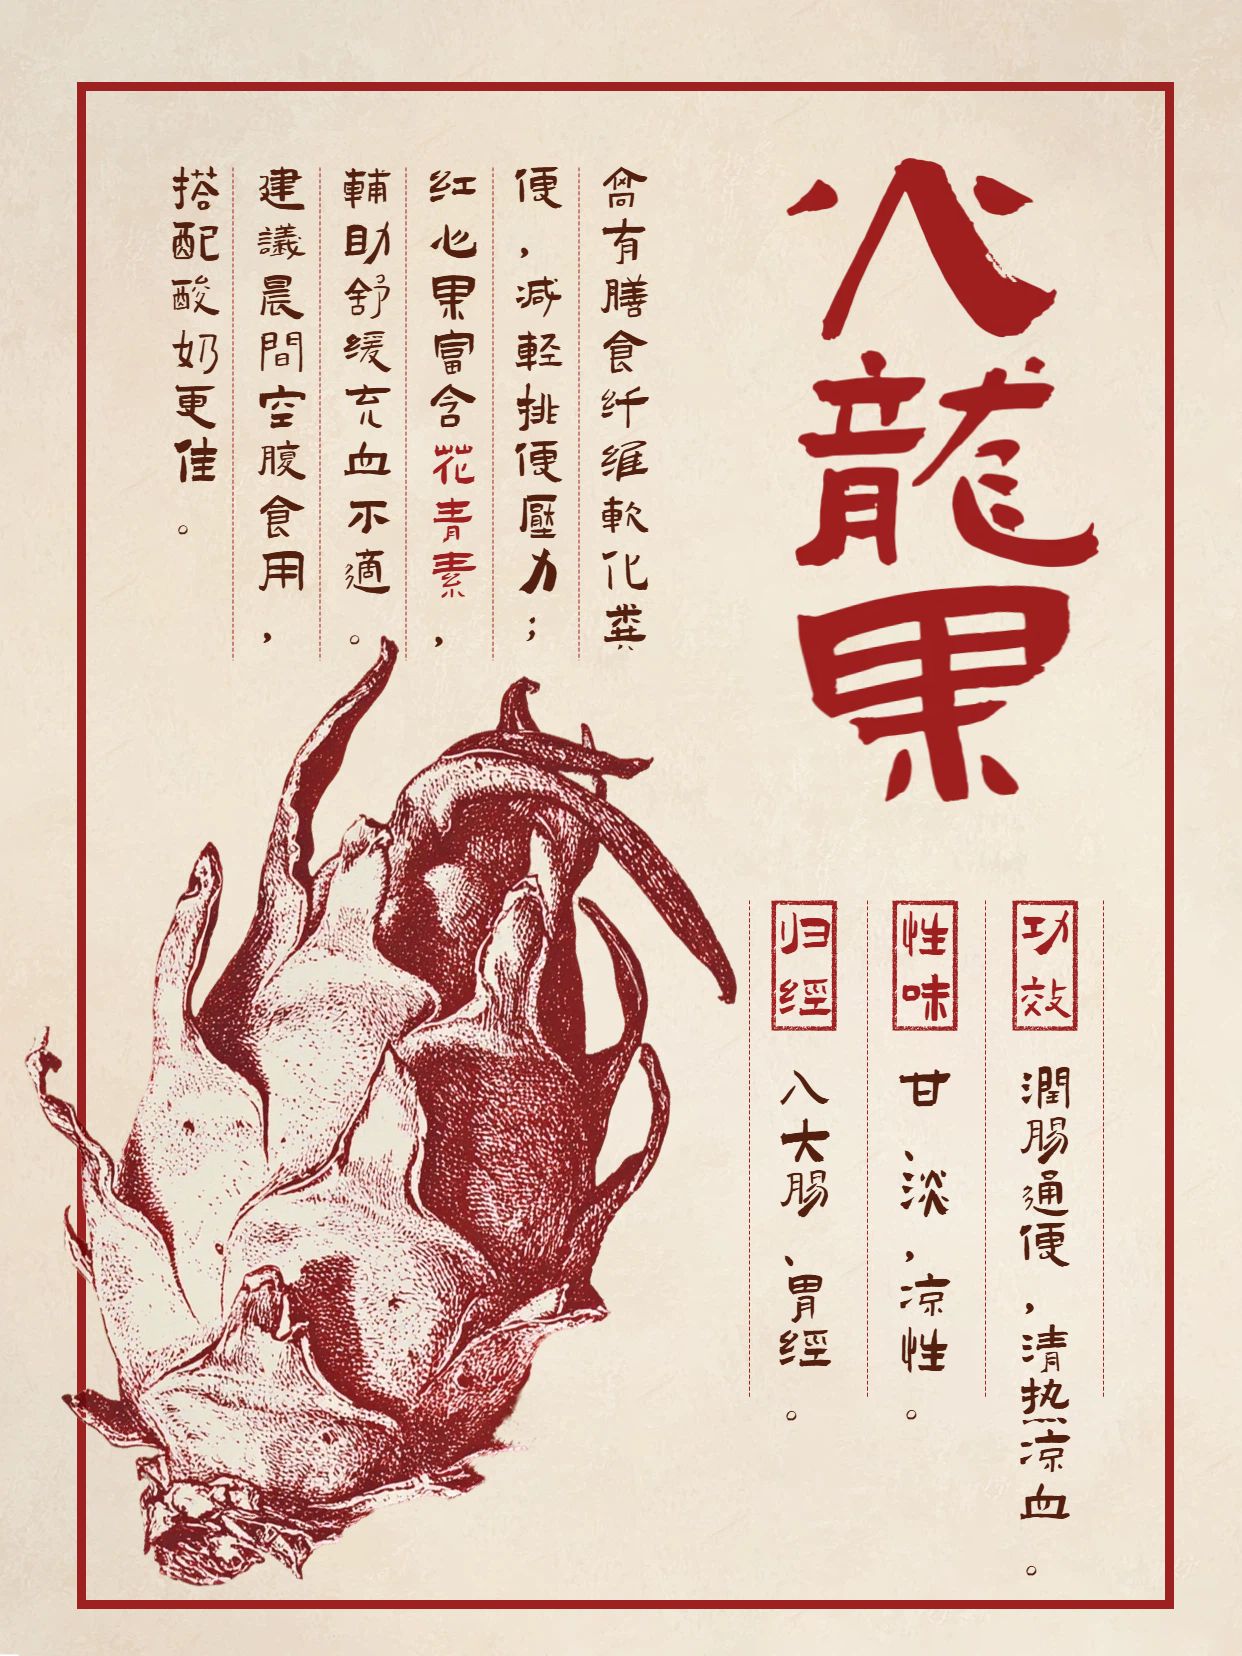 火龍果
功效 潤腸通便，清热凉血。
性味 甘、淡，凉性。
归經 入大腸、胃經。
有膳食纤維軟化糞
便，減輕排便壓力；
红心果富含花青素，
輔助舒缓充血不適。
建議晨間空腹食用，
搭配酸奶更佳。